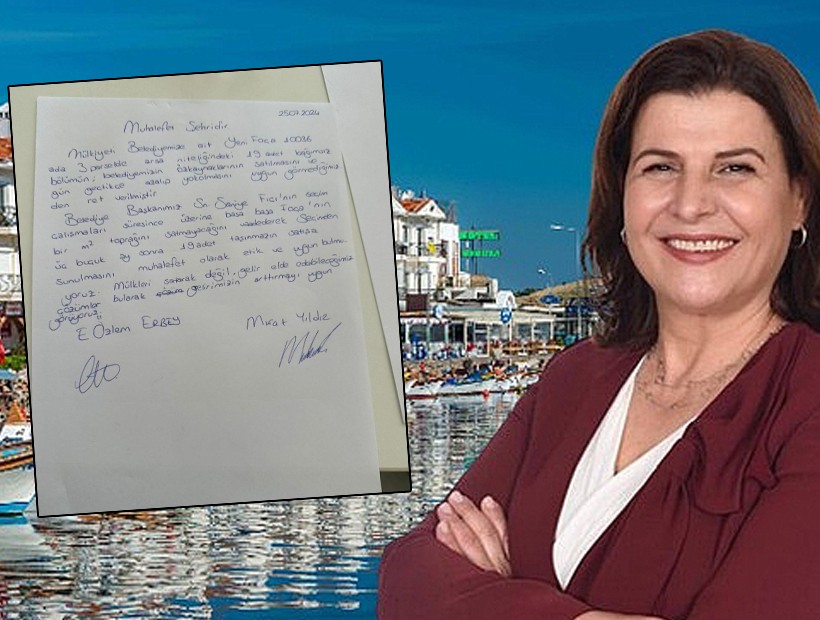 25.07.2024
Muhalefet Şehridir
Mülkiyeti Belediyemize ait Yeni Foça 10036
ada 3 parselde arsa niteliğindeki 19 adet bağımsız
bölümün, belediyemizin özkaynaklarının satılmasını ve
gün geçtikçe azalıp yokolmasını uygun görmediğimiz
den ret verilmiştir
Belediye Başkanımız Sn Saniye Fıçı'nın seçim
çalışmaları süresince üzerine basa basa Foça'nın
bir m² toprağını satmayacağını vaadederek Seçimden
üç buçuk ay sonra 19 adet taşınmazın satışa
sunulmasını muhalefet olarak etik ve uygun bulmu-
yoruz. Mülkleri satarak değil, gelir elde edebileceğimiz
çözümler bularak gelirimizin arttırmayı uygun
görüyoruz.
E Özlem ERBEY Mırat Yıldız